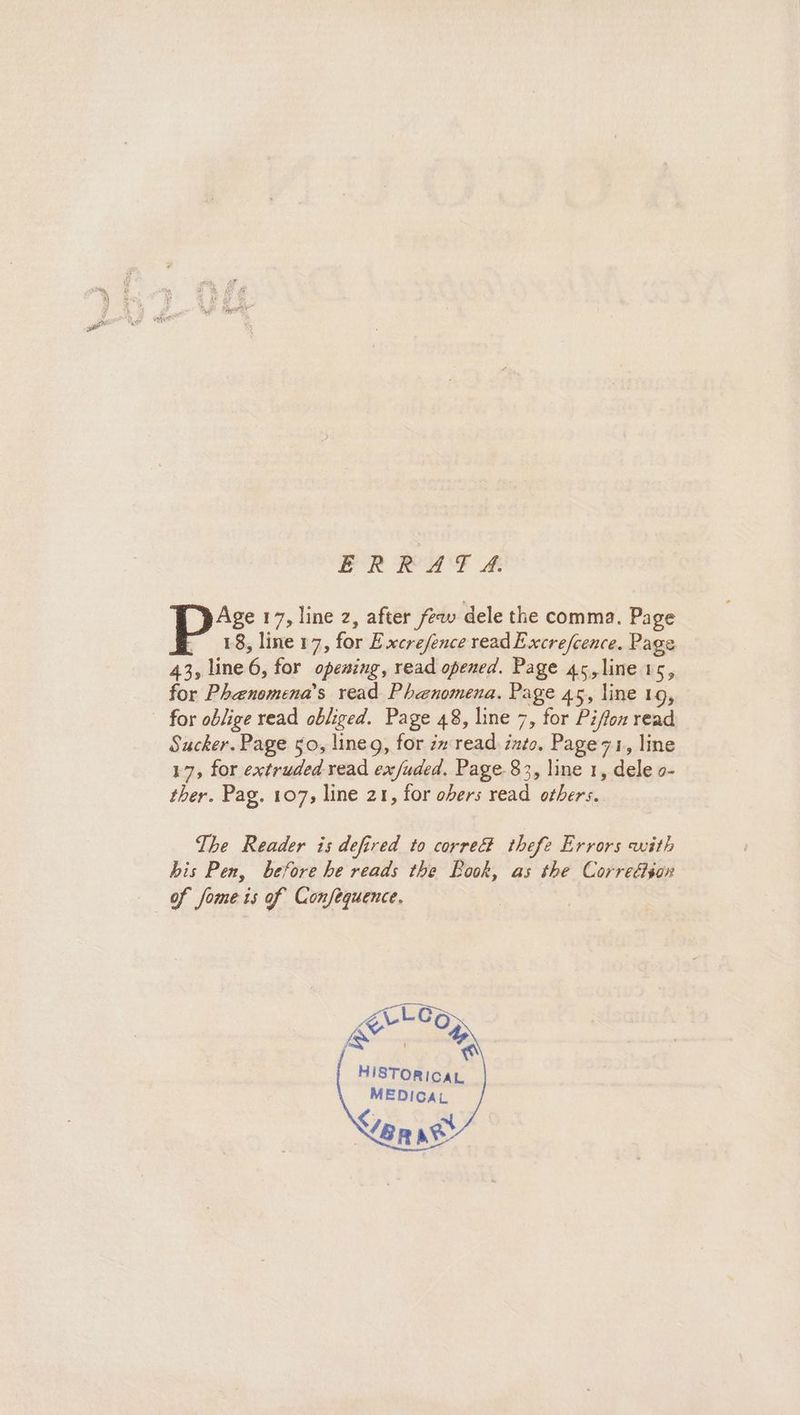 ERRATA.
PAge 17, line 2, after few dele the comma. Page
18, line 17, for Excreſence read Excreſcence. Page
43, line 6, for opening, read opened. Page 45, line 15,
for Phænomena's read Phænomena. Page 45, line 19,
for oblige read obliged. Page 48, line 7, for Piſton read
Sucker. Page 50, line 9, for in read into. Page 71, line
17, for extruded read exſuded. Page 83, line 1, dele o-
ther. Pag. 107, line 21, for ohers read others.
The Reader is deſired to correct theſe Errors with
his Pen, before he reads the Book, as the Correction
of ſome is of Conſequence.
WELLCOME
HISTORICAL
MEDICAL
LIBRARY